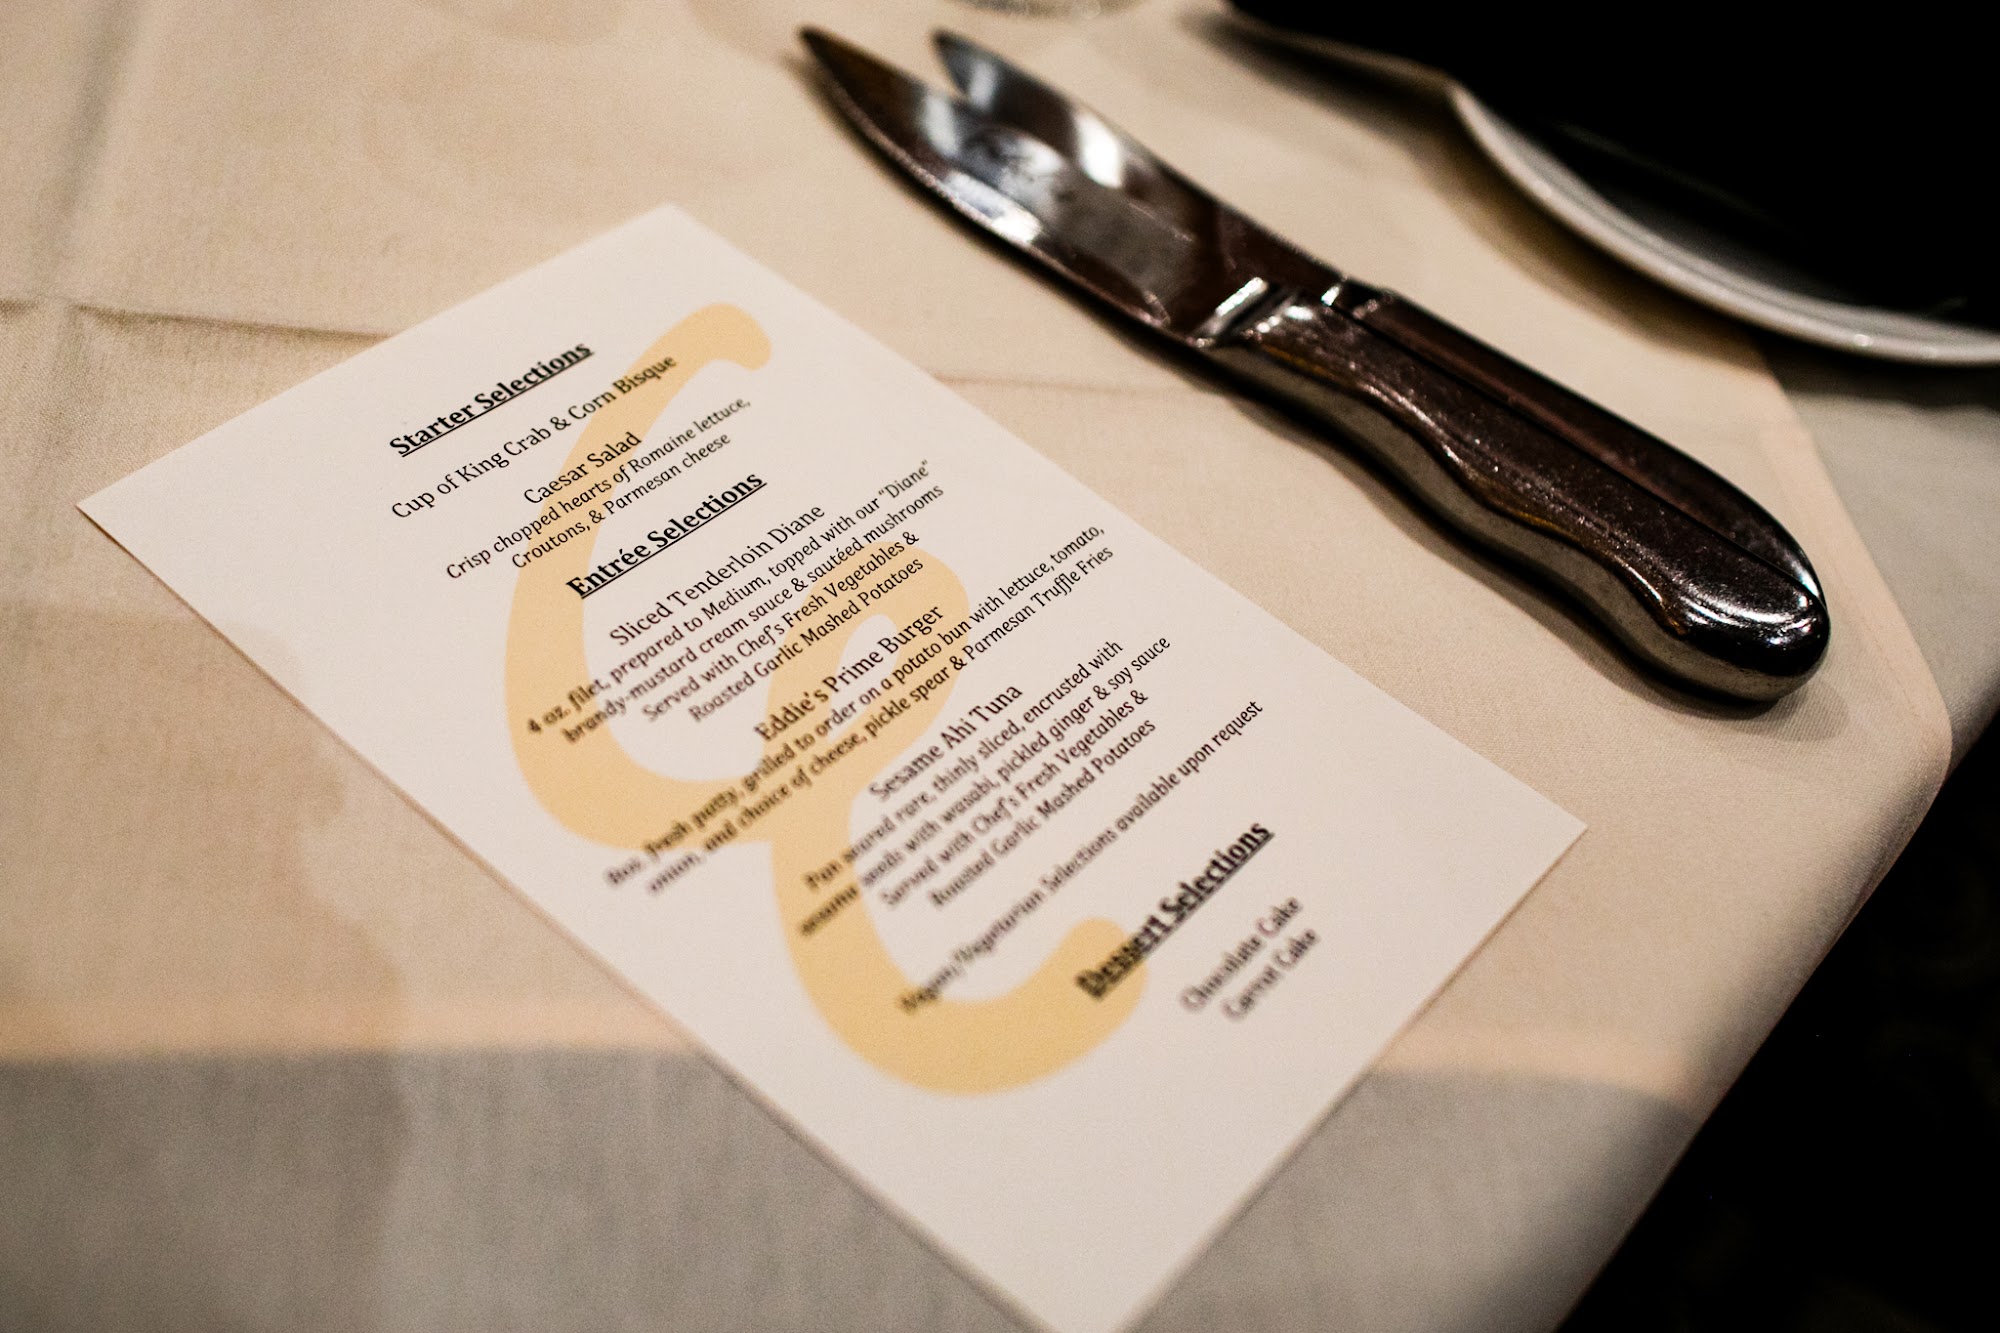 Starter Selections
Cup of King Crab & Corn Bisque
Caesar Salad
Crisp chopped hearts of Romaine lettuce,
Croutons, & Parmesan cheese
Entrée Selections
Sliced Tenderloin Diane
4 oz. filet, prepared to Medium, topped with our "Diane"
brandy-mustard cream sauce & sautéed mushrooms
Served with Chef's Fresh Vegetables &
Roasted Garlic Mashed Potatoes
Eddie's Prime Burger
8oz. fresh patty, grilled to order on a potato bun with lettuce, tomato,
onion, and choice of cheese, pickle spear & Parmesan Truffle Fries
Sesame Ahi Tuna
Pan seared rare, thinly sliced, encrusted with
sesame seeds with wasabi, pickled ginger & soy sauce
Served with Chef's Fresh Vegetables &
Roasted Garlic Mashed Potatoes
Vegan/Vegetarian Selections available upon request
Dessert Selections
Chocolate Cake
Carrot Cake